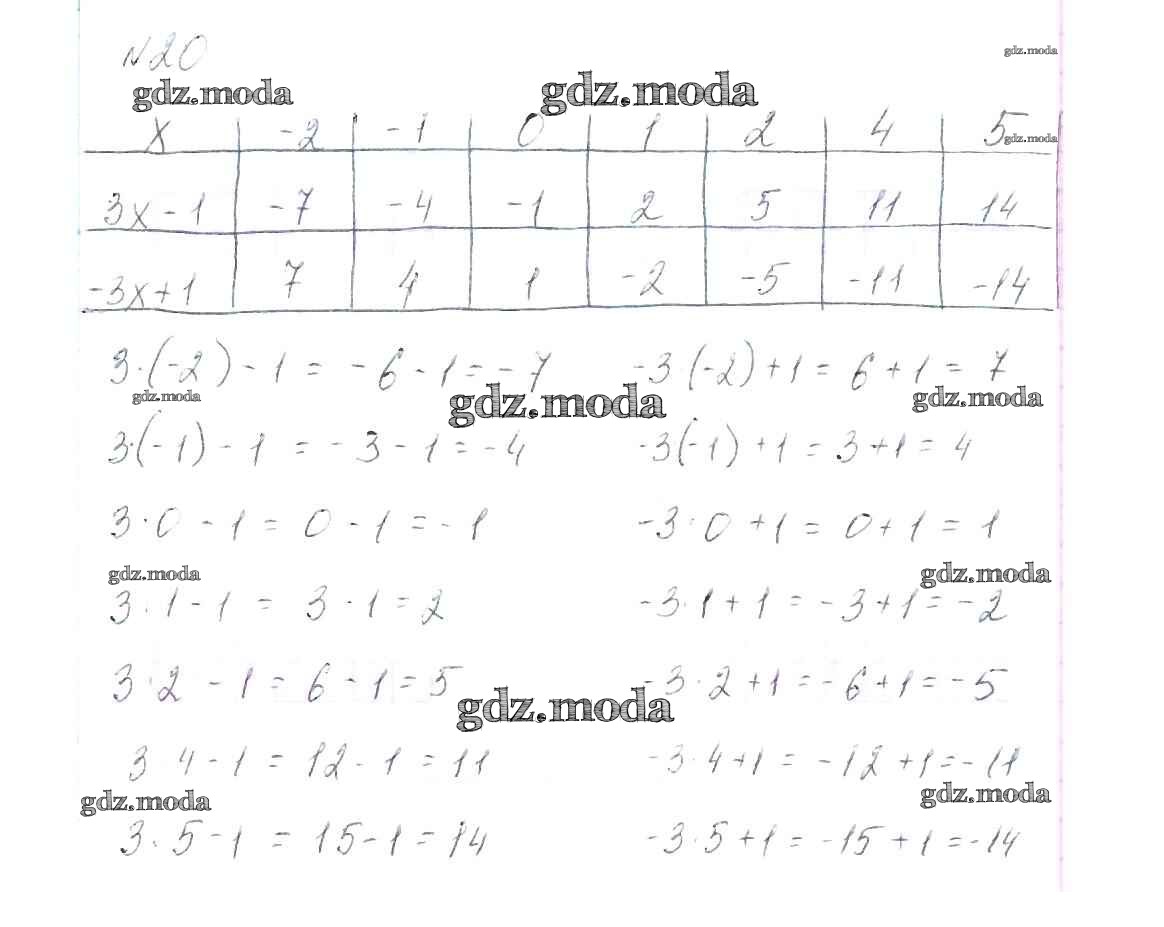 N20
gdz.moda
gdz.moda gdz.moda
x -2 -1 0 1 2 4 5
gdz.moda
3x-1 -7 -4 -1 2 5 11 14
-3x+1 7 4 1 -2 -5 -11 -14
3·(-2)-1 = -6-1=-7 -3·(-2)+1=6+1=7
gdz.moda gdz.moda gdz.moda
3·(-1)-1 = -3-1=-4 -3(-1)+1=3+1=4
3·0-1=0-1=-1 -3·0+1=0+1=1
gdz.moda gdz.moda
3·1-1 = 3-1=2 -3·1+1=-3+1=-2
3·2-1=6-1=5 -3·2+1=-6+1=-5
gdz.moda
3 4-1 = 12-1=11 -3·4+1=-12+1=-11
gdz.moda gdz.moda
3·5-1 = 15-1=14 -3·5+1=-15+1=-14